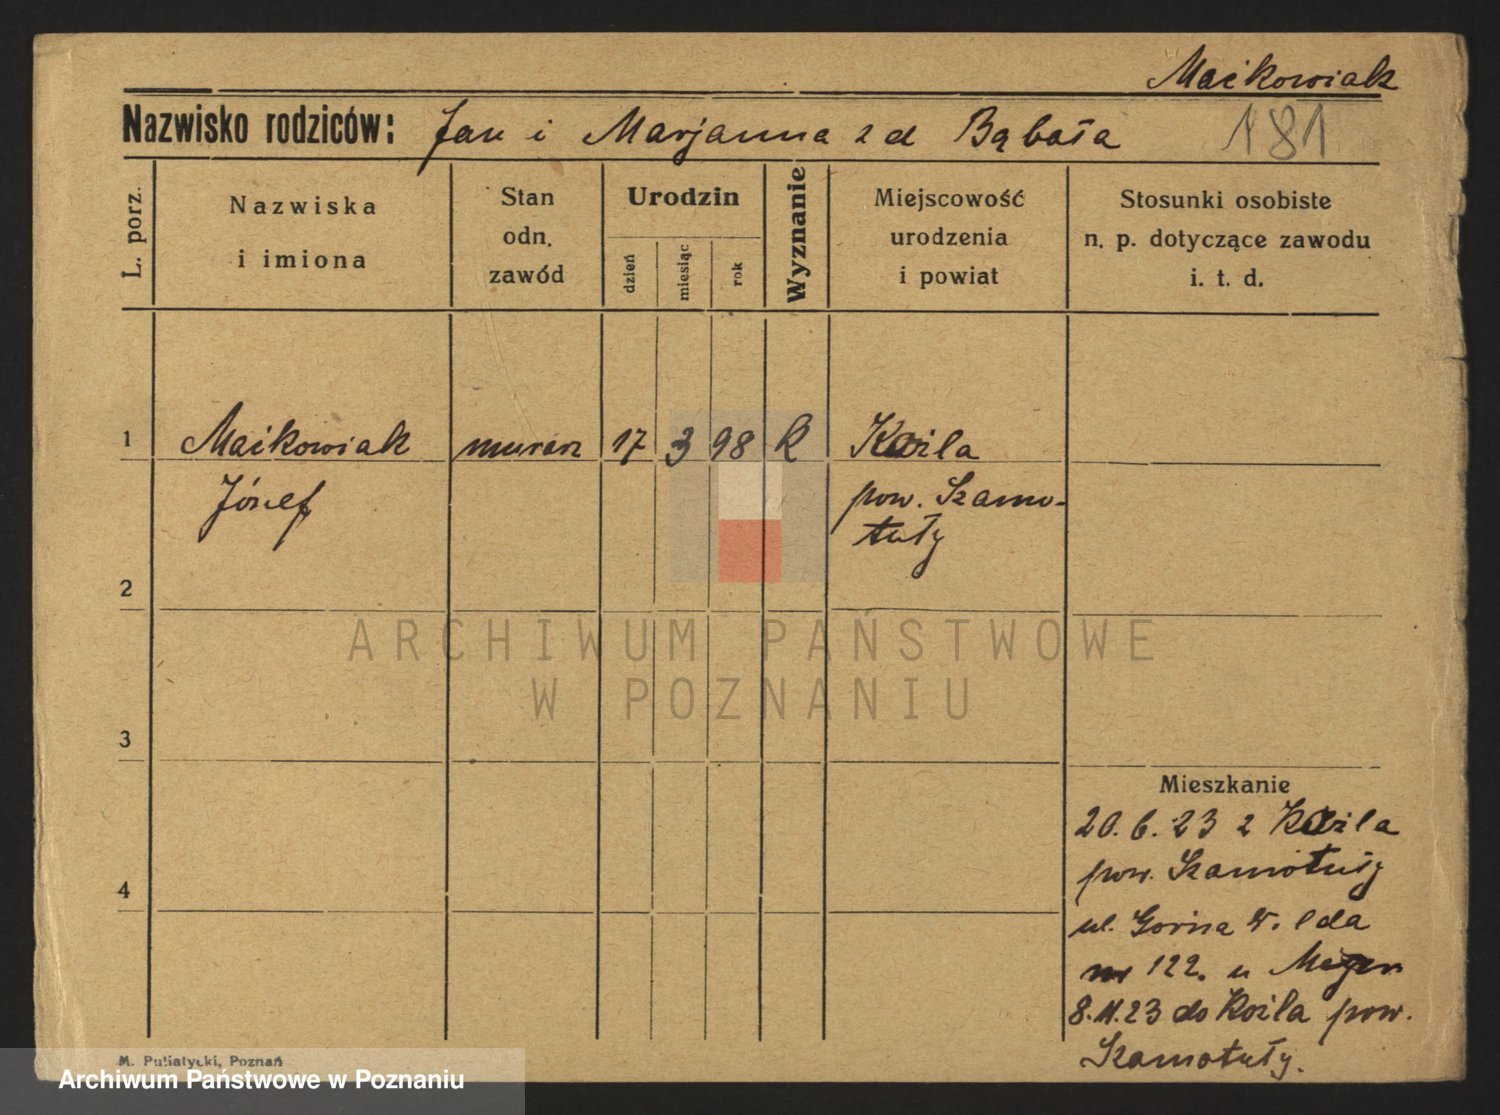 Maćkowiak
Nazwisko rodziców: Jan i Marjanna z d Bąbała
181
L. porz.
Nazwiska
i imiona
Stan
odn.
zawód
Urodzin
dzień
miesiąc
rok
Wyznanie
Miejscowość
urodzenia
i powiat
Stosunki osobiste
n. p. dotyczące zawodu
i. t. d.
1
Maćkowiak
Józef
murarz
17
3
98
k
Koźla
pow. Szamo-
tuły
2
ARCHIWUM PAŃSTWOWE
W POZNANIU
3
4
Mieszkanie
20.6.23 z Koźla
pow. Szamotuły
ul. Górna Wilda
nr 122. u Meyer
8.11.23 do Koźla pow.
Szamotuły.
M. Putiatycki, Poznań
Archiwum Państwowe w Poznaniu